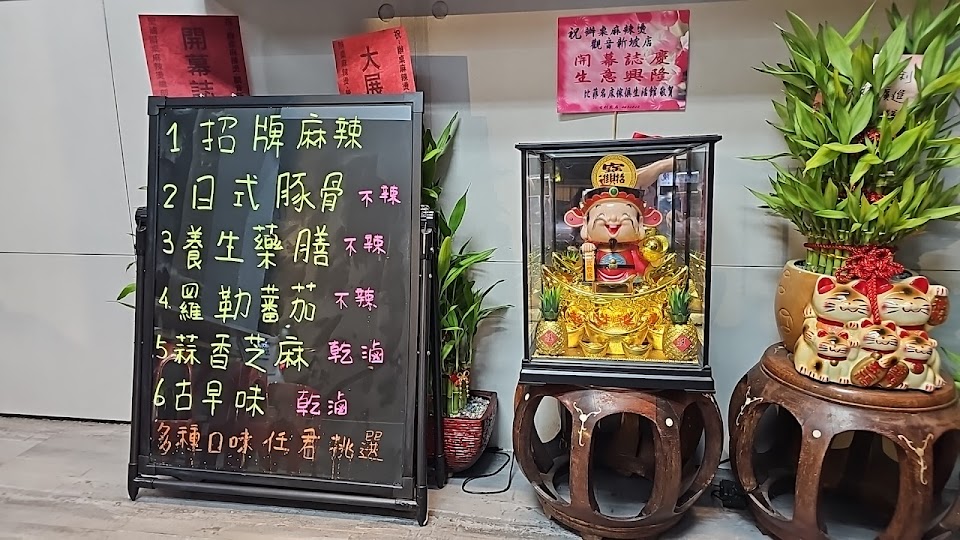 開幕誌
大展
祝 辦桌麻辣燙
觀音新坡店
開幕誌慶
生意興隆
比菲名床傢俱生活館 敬賀
1 招牌麻辣
2 日式豚骨 不辣
3 養生藥膳 不辣
4. 羅勒蕃茄 不辣
5. 蒜香芝麻 乾滷
6 古早味 乾滷
多種口味任君挑選